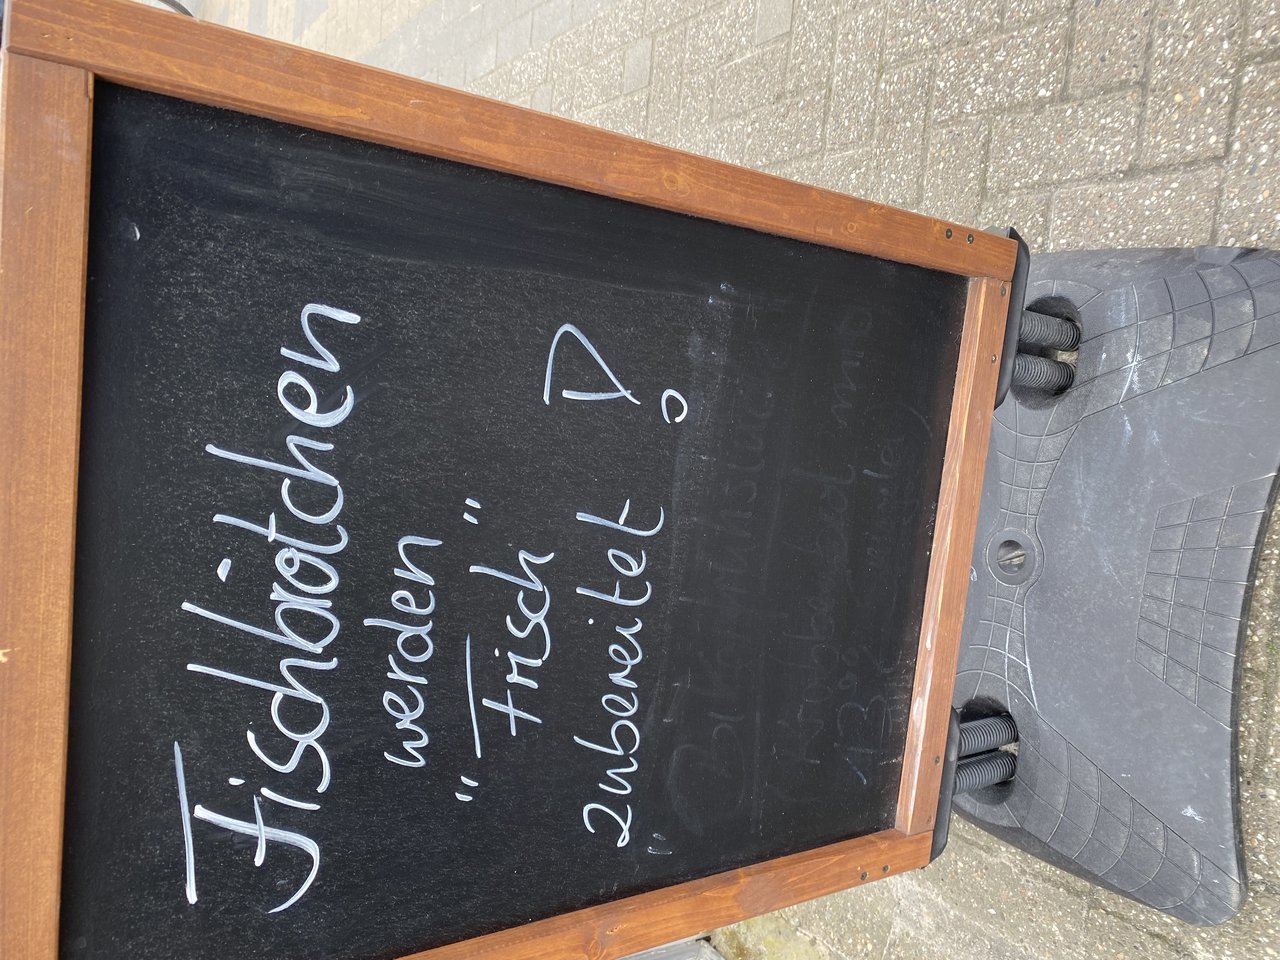 Fischbrötchen
werden
"Frisch"
zubereitet!